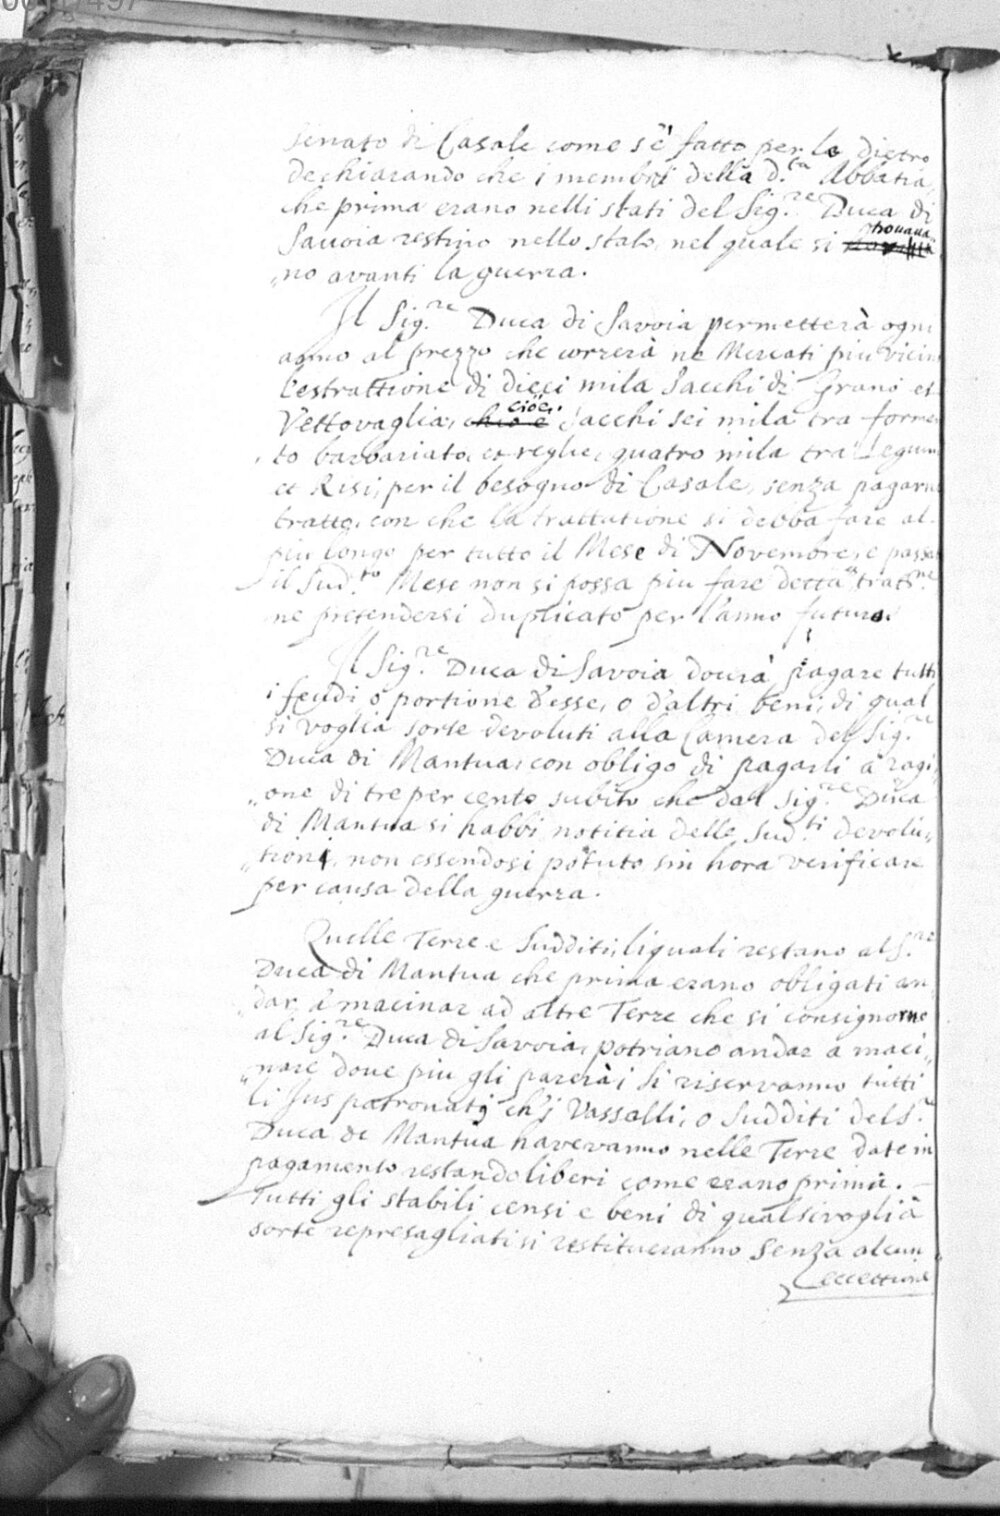 senato di Casale come s'è fatto per le dietro
dechiarando che i membri della d.ta Abbatia,
che prima erano nelli stati del Sig.re Duca di
Savoia restino nello stato, nel quale si trouaua
„no avanti la guerra.
Il Sig.re Duca di Savoia permetterà ogni
anno al prezzo che correrà ne Mercati piu vicin
l'estrattione di dieci mila Sacchi di Grano et
Vettovaglia, cioè, Sacchi sei mila tra forme
to barbariato, et reglie, quatro mila tra Legum
et Risi, per il besogno di Casale, senza pagarne
tratta, con che la trattatione si debba fare al
piu longo per tutto il Mese di Novembre, e passat
il Sud.to Mese non si possa piu fare detta trat.ne
ne pretendersi duplicato per l'anno futuro.
Il Sig.re Duca di Savoia dourà pagare tutti
i feudi o portione d'esse, o d'altri beni, di qual
si voglia sorte devoluti alla Camera del Sig.re
Duca di Mantua, con obligo di pagarli à ragi
„one di tre per cento subito che dal Sig.re Duca
di Mantua si habbi notitia delle Sud.ti devolu„
„tioni, non essendosi potuto sin hora verificare
per causa della guerra.
Quelle Terre e Sudditi, li quali restano al S.re
Duca di Mantua che prima erano obligati an
„dar à macinar ad altre Terre che si consignorno
al Sig.re Duca di Savoia, potriano andar a maci„
„nare doue piu gli parerà, Si riservanno tutti
li Jus patronatj ch'j Vassalli, o Sudditi del S.r
Duca di Mantua havevanno nelle Terre date in
pagamento restando liberi come erano prima.
Tutti gli stabili censi e beni di qualsivoglia
sorte represagliati si restitueranno Senza alcun
eccettione